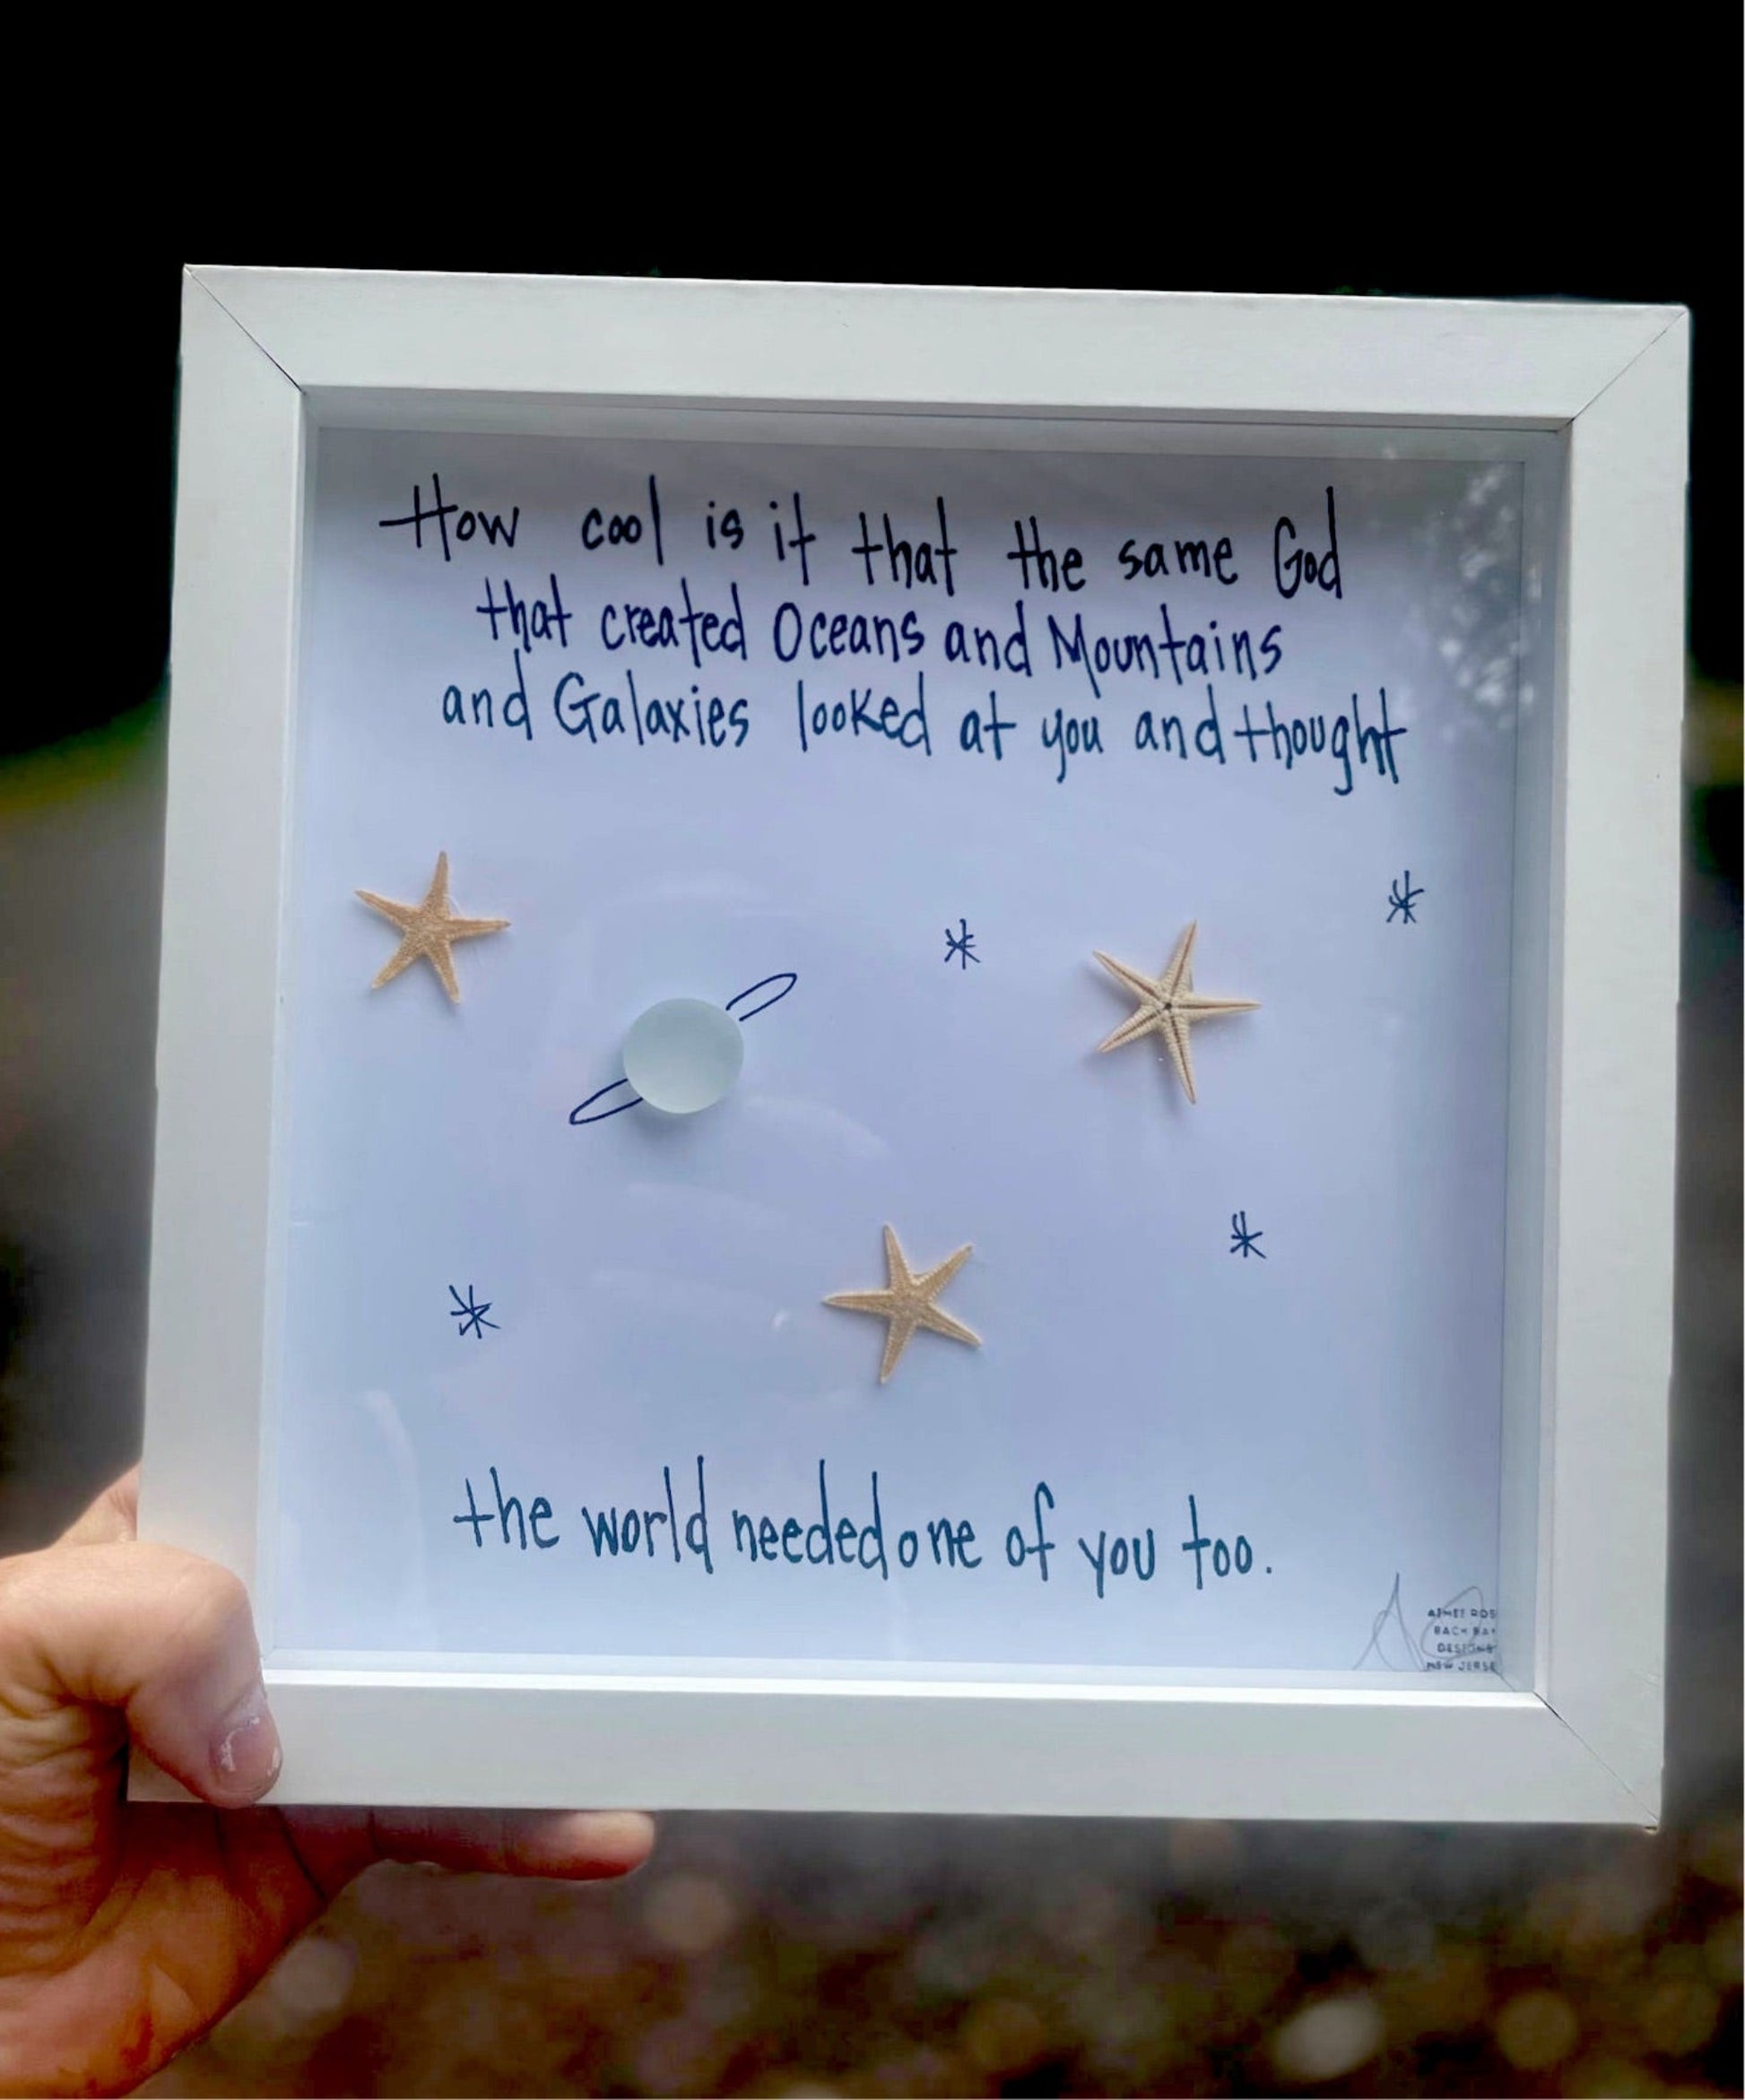 How cool is it that the same God
that created Oceans and Mountains
and Galaxies looked at you and thought
the world needed one of you too.
BACK BAY
DESIGNS
NEW JERSE